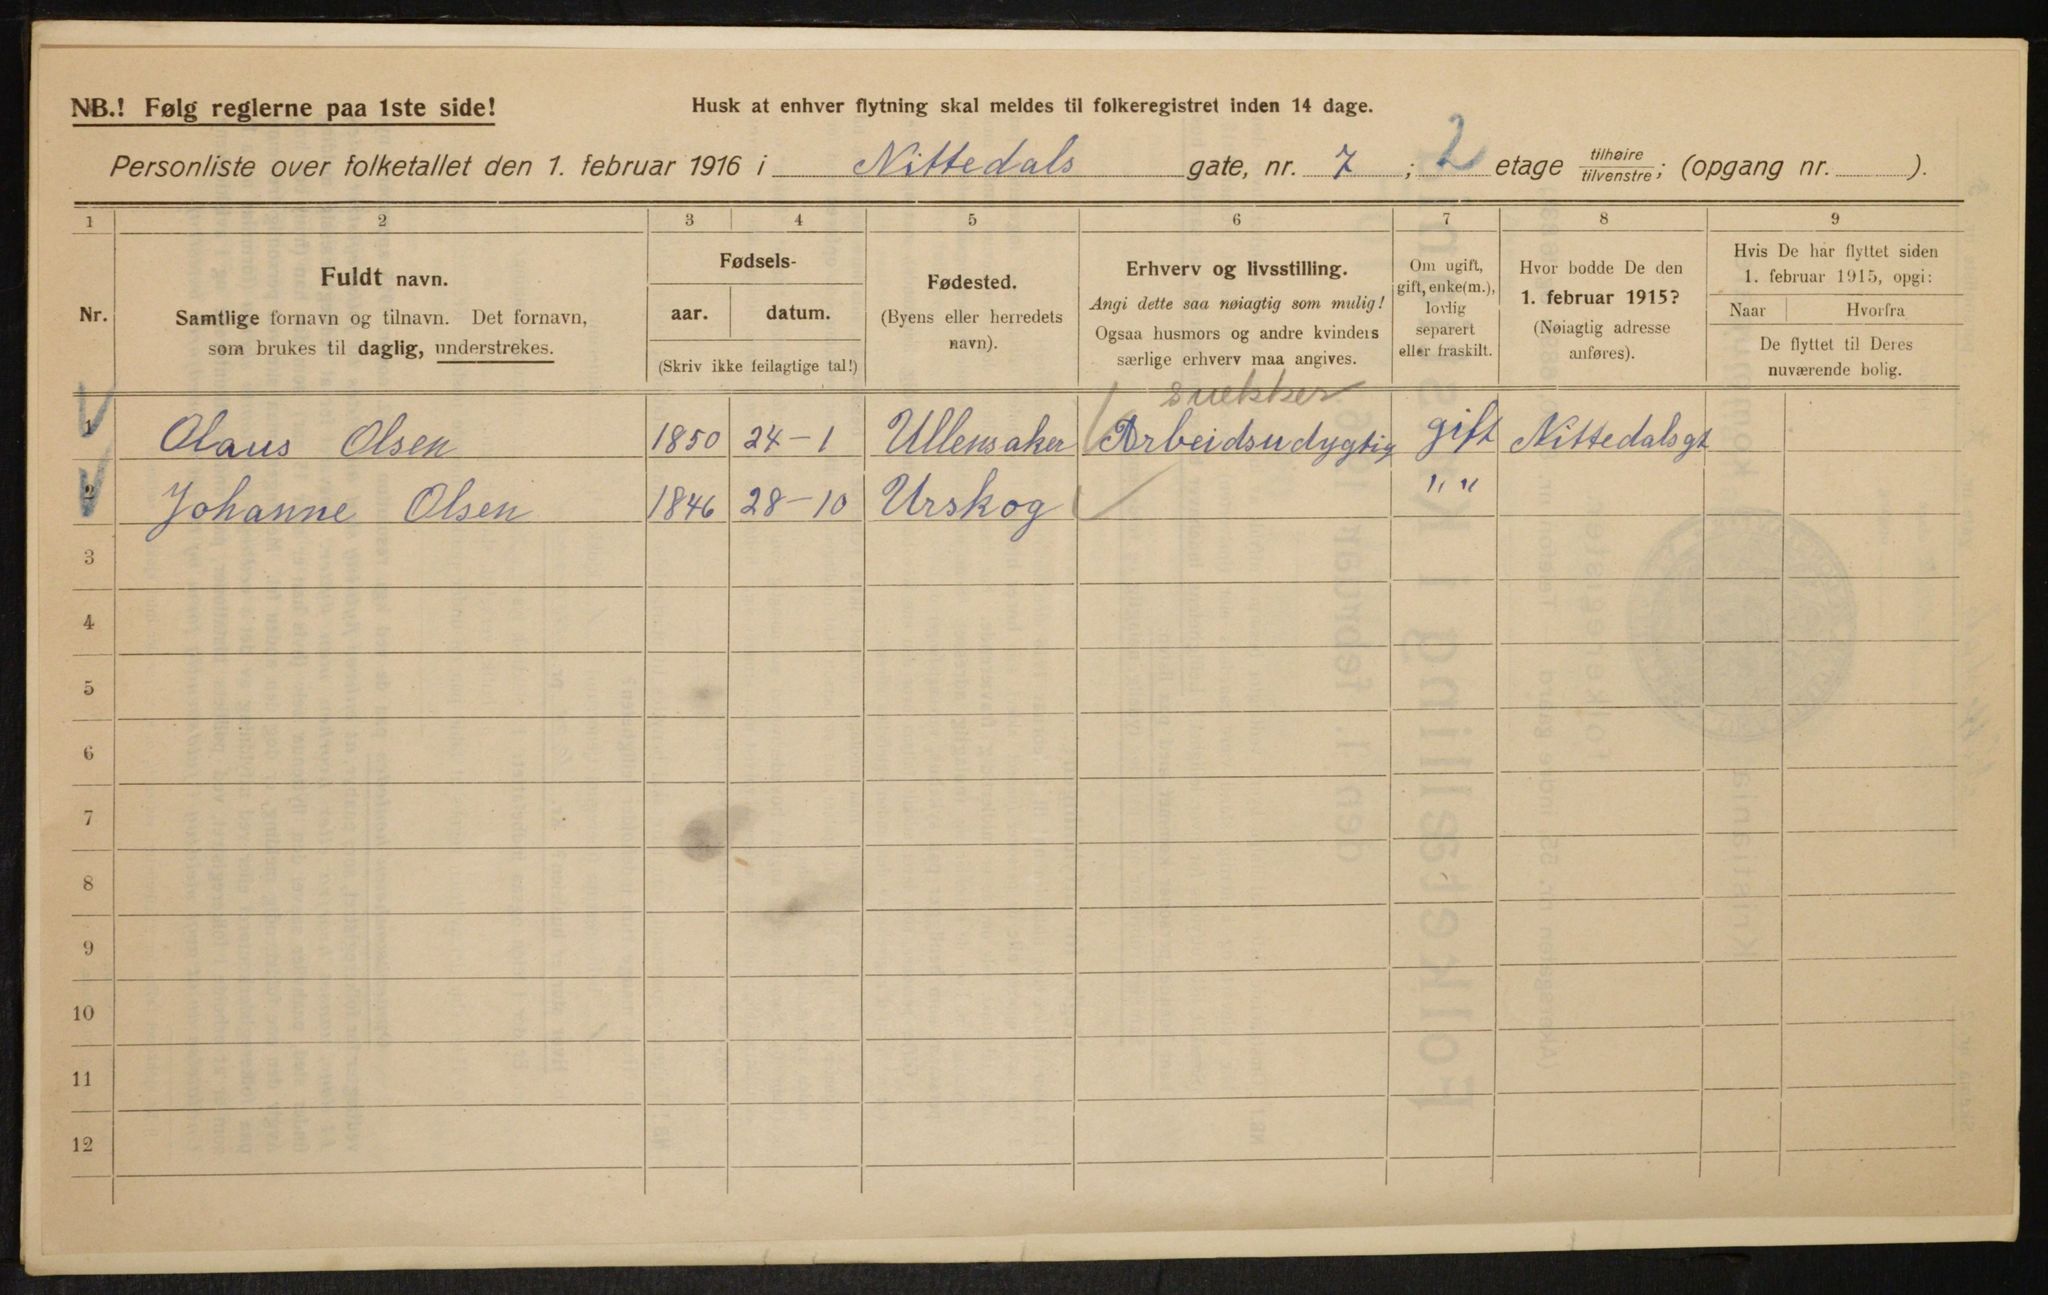 NB.! Følg reglerne paa 1ste side!
Husk at enhver flytning skal meldes til folkeregistret inden 14 dage.
Personliste over folketallet den 1. februar 1916 i Nittedals gate, nr. 7 ; 2 etage tilhøire tilvenstre; (opgang nr. ).
1 2 3 4 5 6 7 8 9
Nr.
Fuldt navn.
Samtlige fornavn og tilnavn. Det fornavn,
som brukes til daglig, understrekes.
Fødsels-
aar. datum.
(Skriv ikke feilagtige tal!)
Fødested.
(Byens eller herredets
navn).
Erhverv og livsstilling.
Angi dette saa nøiagtig som mulig!
Ogsaa husmors og andre kvinders
særlige erhverv maa angives.
Om ugift,
gift, enke(m.),
lovlig
separert
eller fraskilt.
Hvor bodde De den
1. februar 1915?
(Nøiagtig adresse
anføres).
Hvis De har flyttet siden
1. februar 1915, opgi:
Naar Hvorfra
De flyttet til Deres
nuværende bolig.
snekker
1 Olaus Olsen 1850 24-1 Ullensaker Arbeidsudygtig gift Nittedalsgt
2 Johanne Olsen 1846 28-10 Urskog " "
3
4
5
6
7
8
9
10
11
12